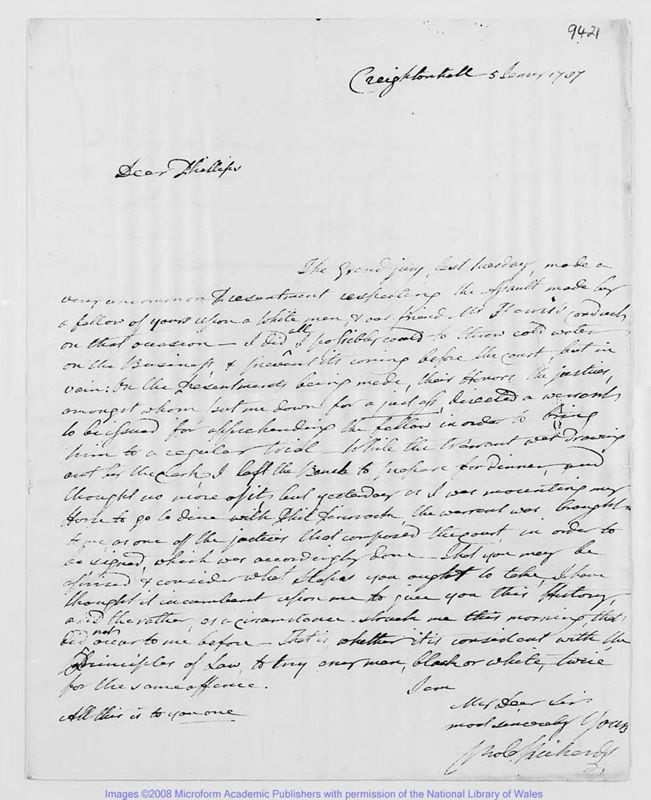 9421
Creightonhall 5 Janry 1787
Dear Phillips
The Grand jury, last tuesday, made a
very uncommon Presentment respecting the assault made by
a fellow of yours upon a White man, & our friend Mr conduct
on that occasion — I did all I possibly could to throw cold water
on the Business, & prevent its coming before the court — but in
vain: On the Presentments being made, their Honors the justices,
amongst whom set me down for a just ass, directed a warrant
to be issued for apprehending the fellow in order to bring
him to a regular trial — While the Warrant was drawing
out by the Clerk I left the Bench to prepare for dinner, and
thought no more of it, but yesterday as I was mounting my
Horse to go to dine with Phil the warrant was brought
to me, as one of the justices that composed the court, in order to
be signed, which was accordingly done — that you may be
apprized & consider what steps you ought to take, I have
thought it incumbent upon me to give you this History,
and the rather, as a circumstance struck me this morning that
did not occur to me before — that is, whether it is consistent with the
Principles of Law, to try any man, black or white, twice
for the same offence.
I am
My Dear Sir
most sincerely Yours
All this is to you one
Images ©2008 Microform Academic Publishers with permission of the National Library of Wales